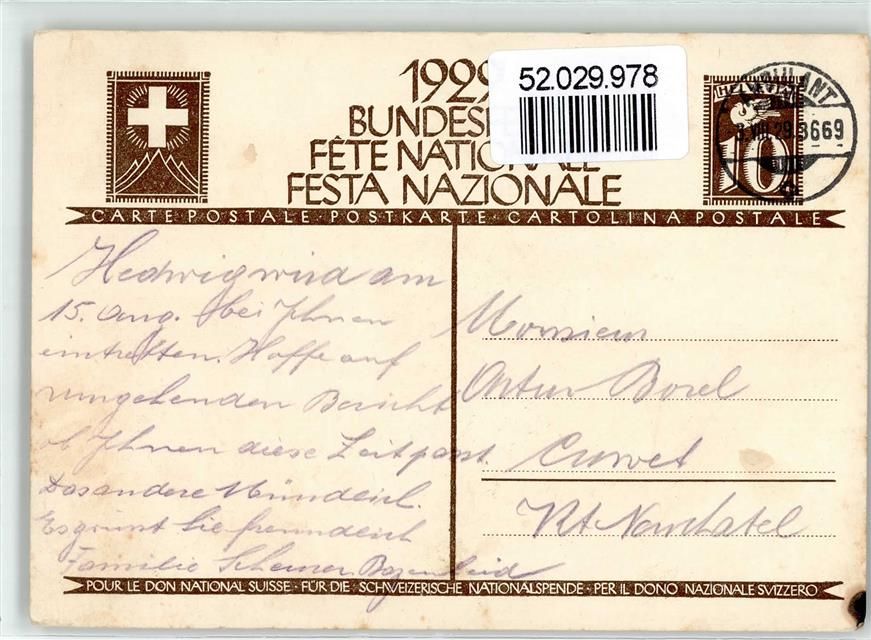 1929
52.029.978
FÊTE NATIONALE
FESTA NAZIONALE
HELVETIA
10
AMBULANT
VIII.29.3669
CARTE POSTALE POSTKARTE CARTOLINA POSTALE
Hedwig wird am
15. Aug. bei Ihnen
eintretten. Hoffe auf
umgehenden Bericht
ob Ihnen diese Zeit passt.
Das andere Mündlich.
Es grüsst Sie freundlich
Familie
Monsieur
Artur Borel
Couvet
Kt. Neuchatel
POUR LE DON NATIONAL SUISSE · FÜR DIE SCHWEIZERISCHE NATIONALSPENDE · PER IL DONO NAZIONALE SVIZZERO